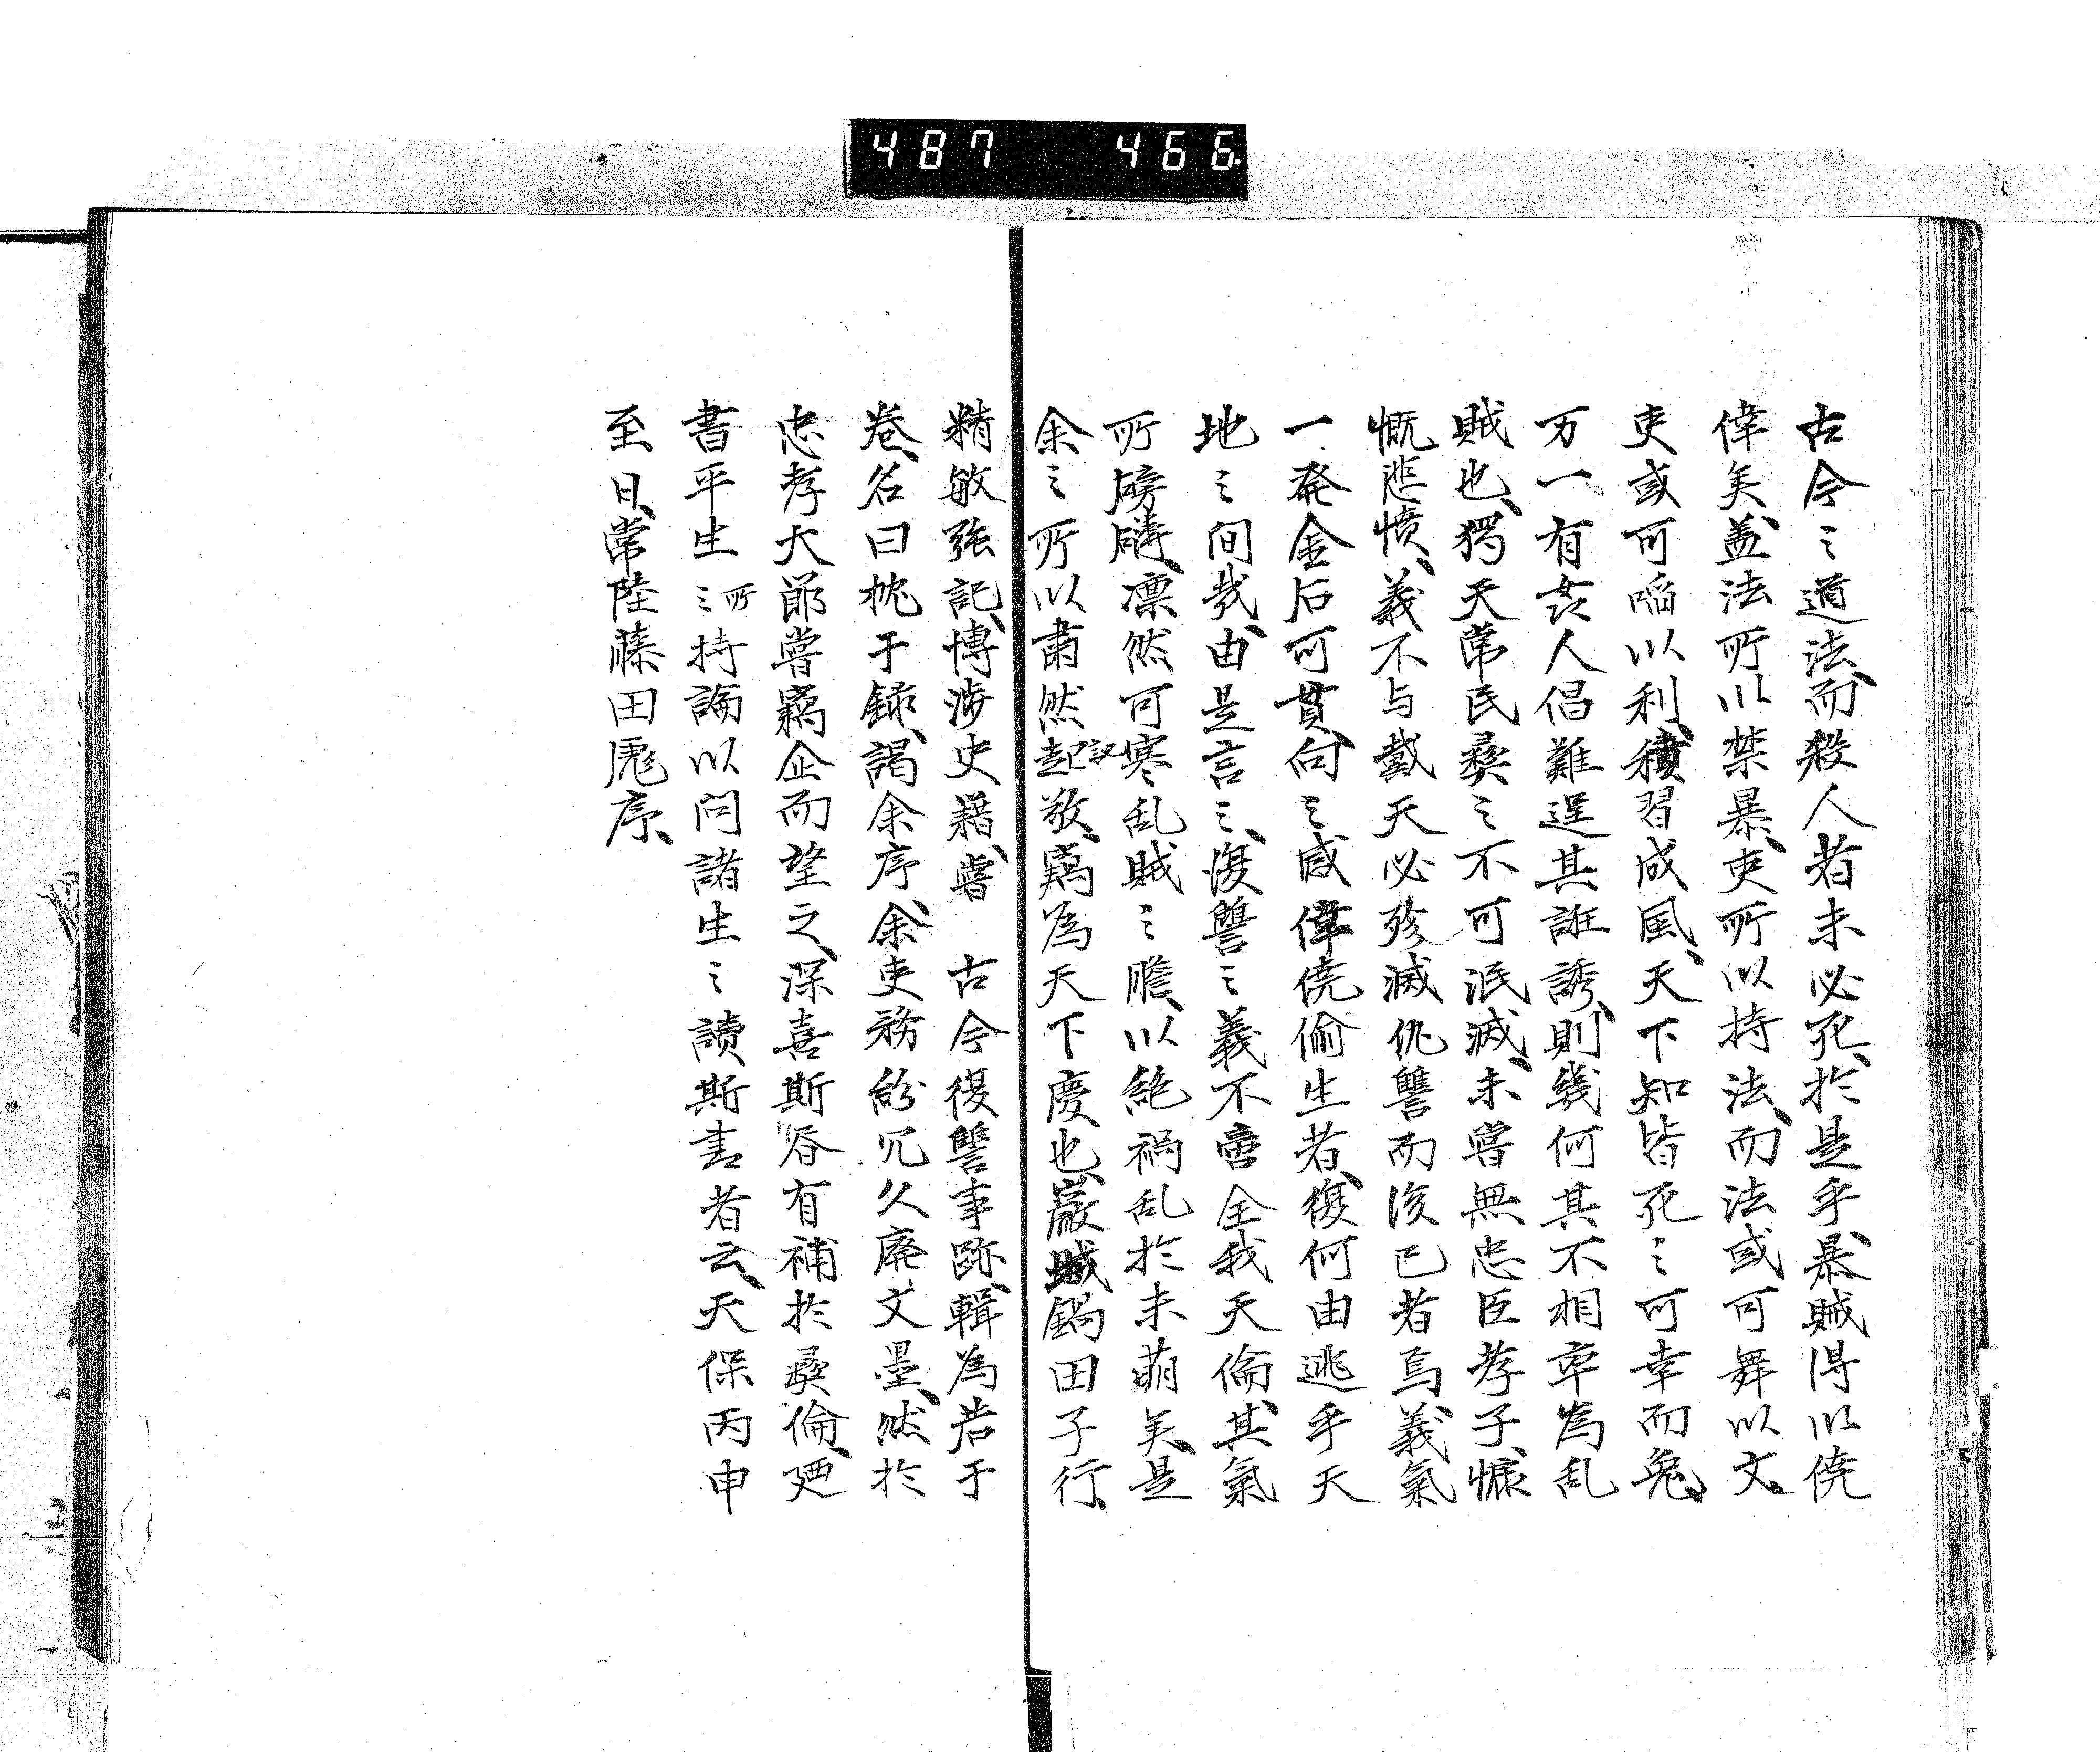 487 466
古今之道法、而殺人者未必死、於是乎、暴賊得以僥
倖矣、蓋法所以禁暴、吏所以持法、而法或可舞以文、
吏或可啗以利、積習成風、天下知皆死之可幸而免、
万一有姦人倡難逞其誑誘、則幾何其不相率為乱
賊也、獨天常民彝之不可泯滅、未嘗無忠臣孝子、慷
慨悲憤、義不与戴天必殄滅仇讐而後已者焉、義氣
一発金石可貫、向之感倖僥偷生者、復何由逃乎天
地之间哉、由是言之、復讐之義不啻全我天倫、其氣
所磅礴、凛然可寒乱賊之膽、以絶禍乱於未萌矣、是
余之所以肅然起敬、竊為天下慶也、巌城鍋田子行、
精敏强記、博渉史籍、嘗 古今復讐事跡、輯為若干
巻、名曰枕干録、謁余序、余吏務紛冗久廃文墨、然於
忠孝大節嘗竊企而望之、深喜斯谷有補於彝倫、廼
書平生所之持論以问諸生之讀斯書者云、天保丙申
至日、常陸藤田彪序、